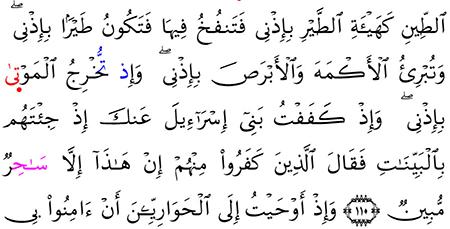 ٱلطِّينِ كَهَيۡـَٔةِ ٱلطَّيۡرِ بِإِذۡنِي فَتَنفُخُ فِيهَا فَتَكُونُ طَيۡرَۢا بِإِذۡنِيۖ
وَتُبۡرِئُ ٱلۡأَكۡمَهَ وَٱلۡأَبۡرَصَ بِإِذۡنِيۖ وَإِذ تُّخۡرِجُ ٱلۡمَوۡتِىٰ
بِإِذۡنِيۖ وَإِذۡ كَفَفۡتُ بَنِيٓ إِسۡرَٰٓءِيلَ عَنكَ إِذ جِئۡتَهُم
بِٱلۡبَيِّنَٰتِ فَقَالَ ٱلَّذِينَ كَفَرُواْ مِنۡهُمۡ إِنۡ هَٰذَآ إِلَّا سَٰحِرٞ
مُّبِينٞ ۝١١٠ وَإِذۡ أَوۡحَيۡتُ إِلَى ٱلۡحَوَارِيِّـۧنَ أَنۡ ءَامِنُواْ بِي